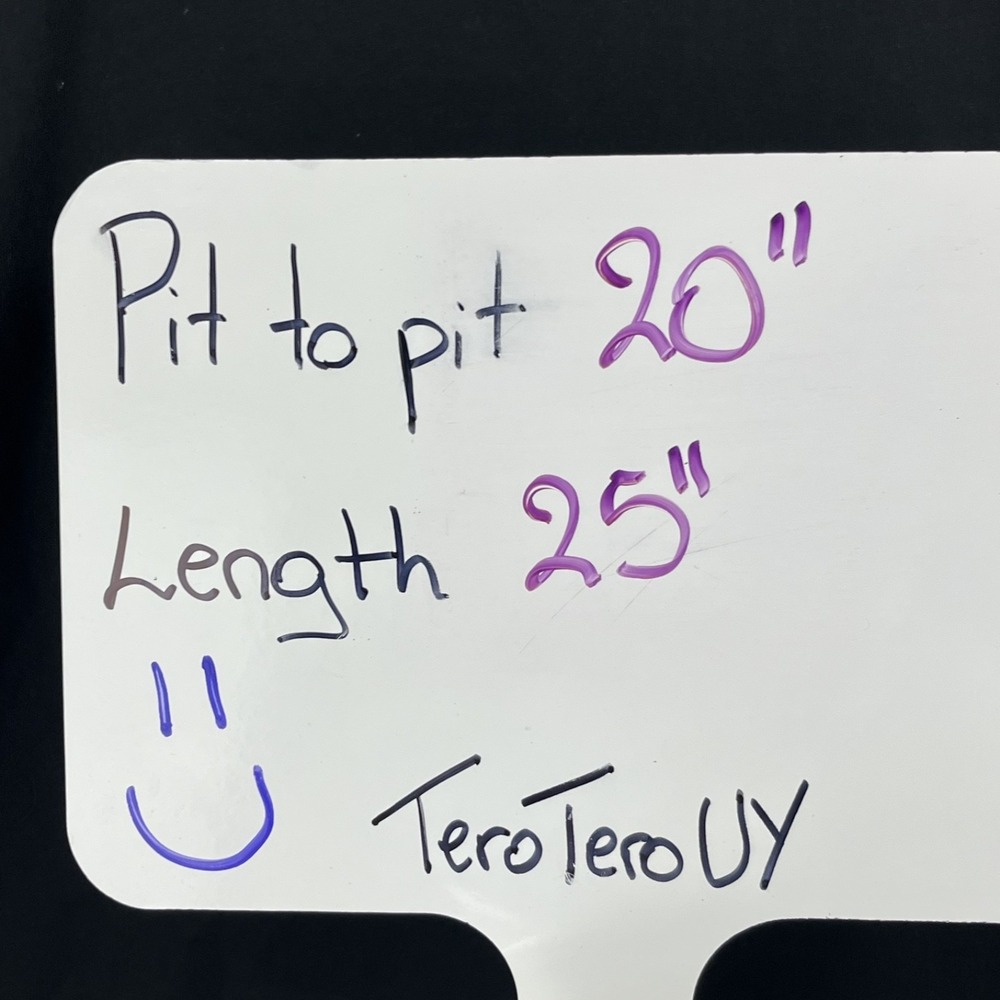 Pit to pit 20"
Length 25"
TeroTeroUY